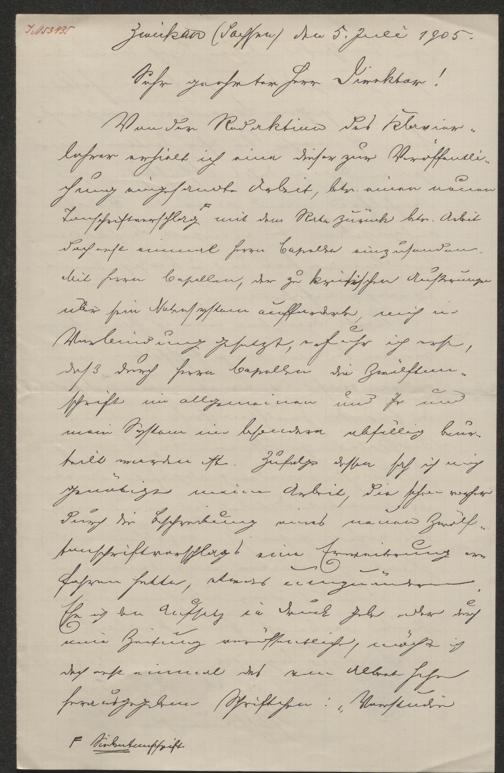 Zwickau (Sachsen) den 5. Juli 1905.
Sehr geehrter Herr Direktor!
Von der Redaktion des Klavier-
lehrer erhielt ich eine dieser zur Veröffentli-
chung eingesandte Arbeit, btr. einen neuen
Tonschriftvorschlag F mit dem Rate zurück btr. Arbeit
doch erst einmal Herrn Capellen einzusenden.
Mit Herrn Capellen, der zu kritischen Äußerungen
über sein Notensystem aufforderte, mich in
Verbindung gesetzt, erfuhr ich erst,
daß durch Herrn Capellen die Zwölfton-
schrift im allgemeinen und Ihr und
mein System im besondern abfällig beur-
teilt worden ist. Zufolge dessen sah ich mich
genötigt meine Arbeit, die schon vorher
durch die Beschreibung eines neuen Zwölf-
tonschriftvorschlags eine Erweiterung er-
fahren hatte, etwas umzuändern.
Ehe ich den Aufsatz in Druck gebe oder durch
eine Zeitung veröffentliche, möchte ich
doch erst einmal das von Albert Hahn
herausgegebene Schriftchen: „Vorstudie
F Siebentonschrift